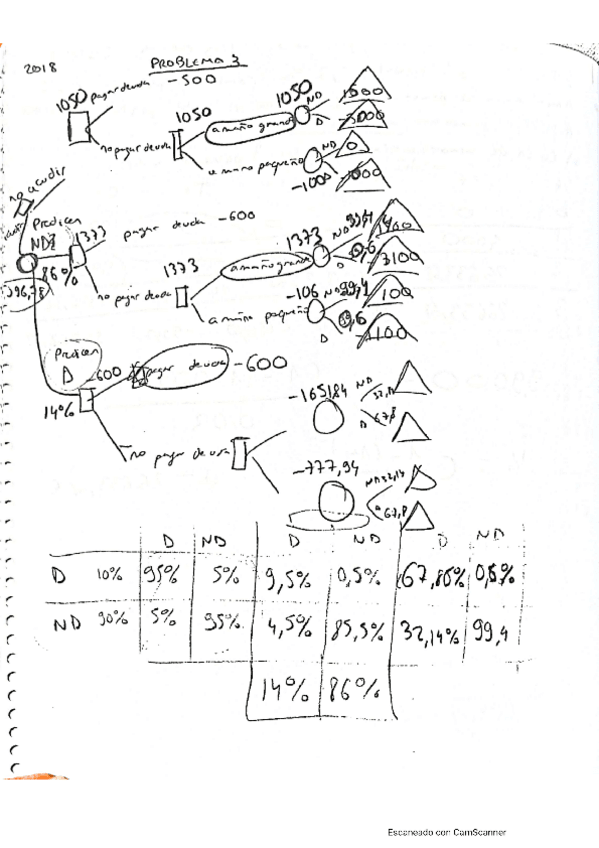 2018
PROBLEMA 3
1050 pagar deuda -500
no pagar deuda 1050 amaño grande 1050 ND 1500
D
amaño pequeño -1000 ND 0
D
no acudir
Predicen ND 86% 1373 pagar deuda -600
no pagar deuda 1373 amaño grande 1373 ND 99,4 1400
D 0,6 -3100
amaño pequeño -106 ND 99,4 -100
D 0,6 -1100
Predicen D 14% -600 pagar deuda -600
no pagar deuda -1651,84 ND 32,14
D 67,8
-777,94 ND 32,14
D 67,8
D ND D ND D ND
D 10% 95% 5% 9,5% 0,5% 67,86% 0,6%
ND 90% 5% 95% 4,5% 85,5% 32,14% 99,4
14% 86%
Escaneado con CamScanner